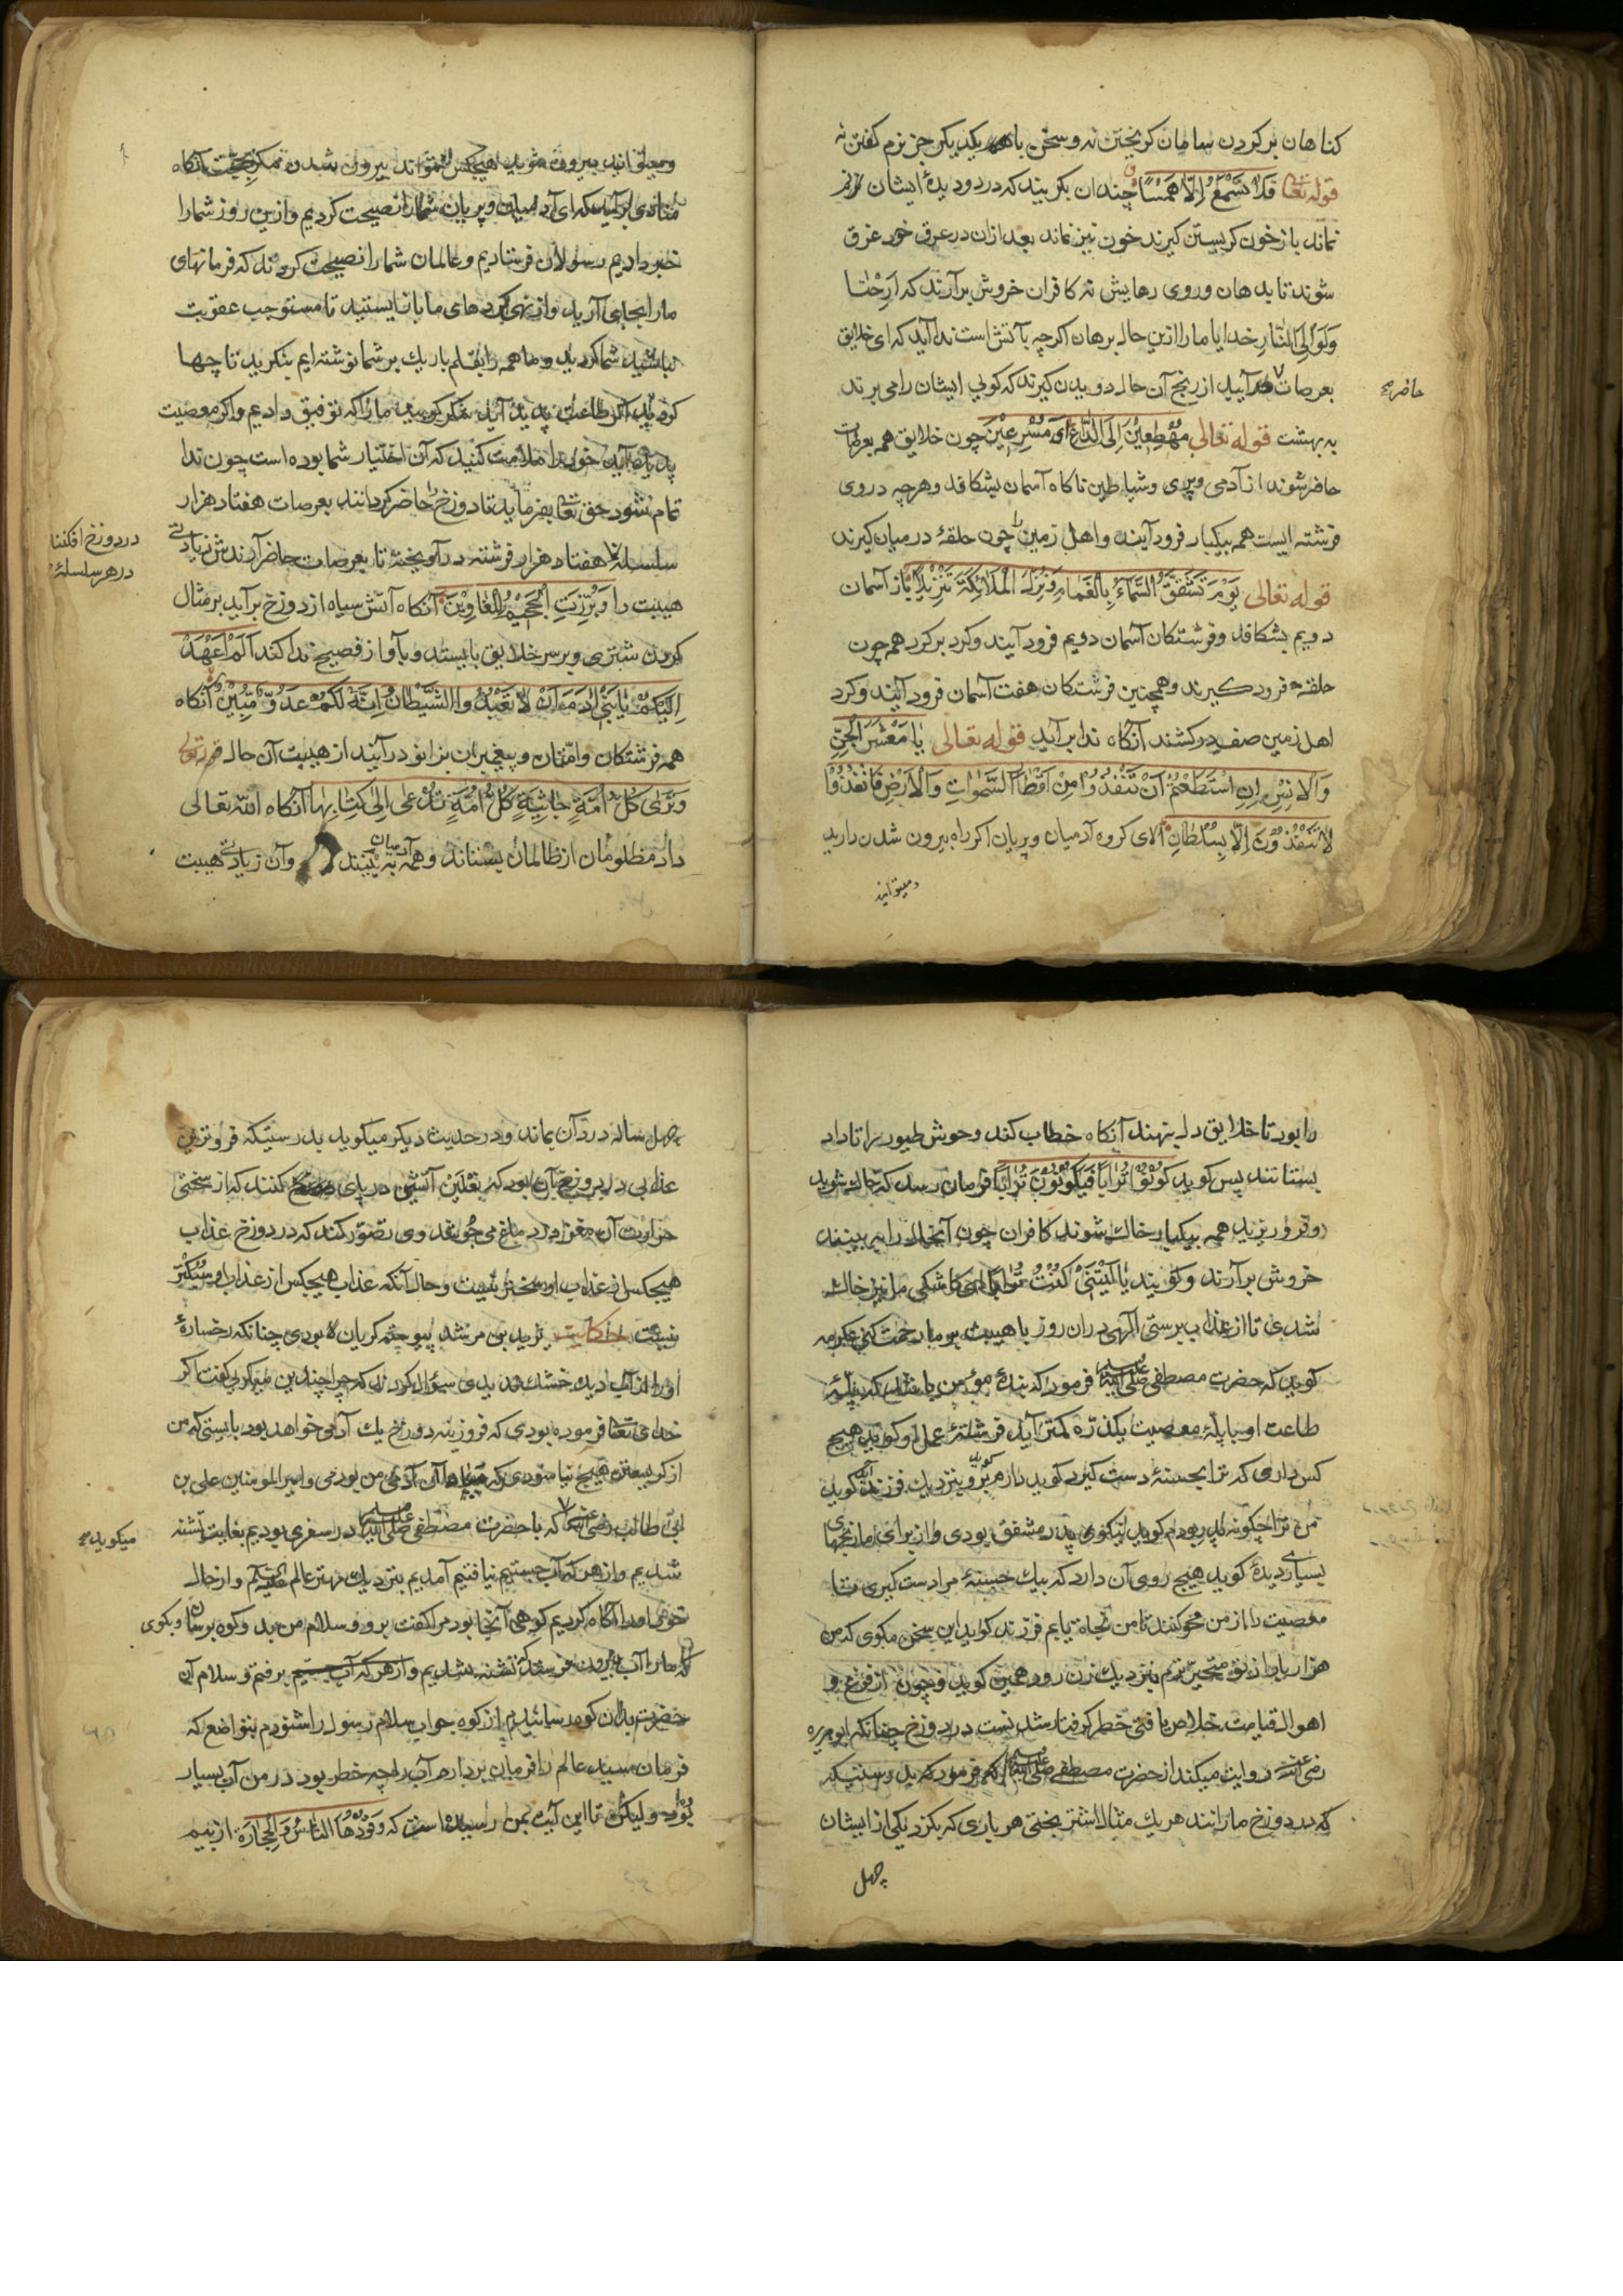 کناهان بر کردن سامان کریختن نه و سخن با یکدیکر جز نرم کفتن نه
قوله تعا فَلَا تَسْمَعُ اِلَّا هَمْسًا چندان بکریند که در دو دیدهٔ ایشان نم
نماند باز خون کریستن کیرند خون نیز نماند بعد ازان در عرق خود غرق
شوند تا بدهان و روی رهایش نه کافران خروش برآرند که اَرِحْنَا
وَلَوْ اِلَی النَّارِ خدایا ما را ازین حال برهان اکرچه بآتش است ندا آید که ای خلایق
بعرصات آیید از رنج آن حال دویدن کیرند که کویی ایشان را می برند
حاضر
به بهشت قوله تعالی مُهْطِعِیْنَ اِلَی الدَّاعِ ای مُسْرِعِیْنَ چون خلایق همه بعرصات
حاضر شوند از آدمی و پری و شیاطین ناکاه آسمان بشکافد و هرچه دروی
فرشته ایست همه بیکبار فرود آیند و اهل زمین را چون حلقهٔ درمیان کیرند
قوله تعالی یَوْمَ تَشَقَّقُ السَّمَآءُ بِالْغَمَامِ وَنُزِّلَ الْمَلَائِکَةُ تَنْزِیْلًا باز آسمان
دویم بشکافد و فرشتکان آسمان دویم فرود آیند و کرد بر کرد همه چون
حلقه فرود کیرند و همچنین فرشتکان هفت آسمان فرود آیند و کرد
اهل زمین صف درکشند آنکاه ندا برآید قوله تعالی یَا مَعْشَرَ الْجِنِّ
وَالْاِنْسِ اِنِ اسْتَطَعْتُمْ اَنْ تَنْفُذُوْا مِنْ اَقْطَارِ السَّمٰوَاتِ وَالْاَرْضِ فَانْفُذُوْا
لَا تَنْفُذُوْنَ اِلَّا بِسُلْطَانٍ ای کروه آدمیان و پریان اکر راه بیرون شدن دارید
و میتوانید
و میتوانید بیرون شوید هیچکس نتواند بیرون شدن مکر بحجت آنکاه
منادی برآید که ای آدمیان و پریان شما را نصیحت کردیم و ازین روز شما را
خبر دادیم رسولان فرستادیم و عالمان شما را نصیحت کردند که فرمانهای
ما را بجای آرید و از نهی کردهای ما باز ایستید تا مستوجب عقوبت
نباشید شما کردید و ما همه را بقلم باریك بر شما نوشته ایم بنکرید تا چها
کردید اکر طاعت پدید آید شکر کویید ما را که توفیق دادیم و اکر معصیت
پدید آید خود را ملامت کنید که آن اختیار شما بوده است چون ندا
تمام شود حق تعا بفرماید تا دوزخ را حاضر کردانند بعرصات هفتاد هزار
در دوزخ افکنند
در هر سلسلهٔ
سلسله هفتاد هزار فرشته درآویخته تا بعرصات حاضر آرندش زیادتی
هیبت را وَبُرِّزَتِ الْجَحِیْمُ لِلْغَاوِیْنَ آنکاه آتش سیاه از دوزخ برآید بر مثال
کردن شتری و بر سر خلایق بایستد و بآواز فصیح ندا کند اَلَمْ اَعْهَدْ
اِلَیْکُمْ یَا بَنِیْ اٰدَمَ اَنْ لَا تَعْبُدُوا الشَّیْطَانَ اِنَّهُ لَکُمْ عَدُوٌّ مُّبِیْنٌ آنکاه
همه فرشتکان و امتان و پیغمبران بزانو در آیند از هیبت آن حال قوله تعالی
وَتَرٰی کُلَّ اُمَّةٍ جَاثِیَةٍ کُلُّ اُمَّةٍ تُدْعٰی اِلٰی کِتَابِهَا آنکاه الله تعالی
داد مظلومان از ظالمان بستاند و همه آدمیان به بینند و آن زیادتی هیبت
را بود تا خلایق دل بنهند آنکاه خطاب کند وحوش طیور را تا داد
بستانند پس کوید کُوْنُوْا تُرَابًا فَیَکُوْنُوْنَ تُرَابًا فرمان رسد که خاك شوید
و فرو ریزید همه بیکبار خاك شوند کافران چون آنحال را ببینند
خروش برآرند و کویند یَا لَیْتَنِیْ کُنْتُ تُرَابًا ای کاشکی ما نیز خاك
شدی تا از عذاب برستی الهی دران روز با هیبت بر ما رحمت کنی عکرمه
کوید که حضرت مصطفی صلی الله علیه وسلم فرمود که بندهٔ مؤمن باشد که پلهٔ
طاعت او با پلهٔ معصیت یکذره کمتر آید فرشتهٔ عمل او کوید هیچ
کس داری که ترا بحسنهٔ دست کیرد کوید دارم برود بنزدیك فرزند کوید
من ترا چکونه پدر بودم کوید نیکوی پدر مشفق بودی و از برای ما رنجهای
بسیار دیدهٔ کوید هیچ روی آن دارد که بیك حسنهٔ مرا دست کیری تا
معصیت را از من محو کنند تا من نجاة یابم فرزند کوید این سخن مکوی که من
هزار بار از تو متحیرترم بنزدیك زن رود همین کوید و چون از فزع و
اهوال قیامت خلاص یافتی خطر کرفتار شدنست در دوزخ چنانکه ابوهریره
رضی الله عنه روایت میکند از حضرت مصطفی صلی الله علیه وسلم که فرمود که بدرستیکه
که در دوزخ مارانند هر یك مثال اشتر بختی هر باری که بکزد یکی از ایشان
چهل
چهل ساله درد آن بماند و در حدیث دیکر میکوید بدرستیکه فروترین
عذابی در دوزخ آن بود که نعلین آتشین در پای کنند که از سختی
حرارت آن مغز در دماغ می جوشد وی تصور کند که در دوزخ عذاب
هیچکس از عذاب او سختر نیست و حال آنکه عذاب هیچکس از عذاب او سبکتر
نیست حکایت یزید بن مرشد پیوسته کریان بودی چنانکه رخسارهٔ
او را از آب دیده خشك ندیدی سؤال کردند که چرا چندین میکریی کفت اکر
خدای تعا فرموده بودی که فروزینه دوزخ یك آدمی خواهد بود بایستی که من
از کریستن هیچ نیاسودی که مبادا آن آدمی من بودمی و امیر المومنین علی بن
ابی طالب رضی الله عنه که با حضرت مصطفی صلی الله علیه وسلم در سفری بودیم بغایت تشنه
میکوید
شدیم و از هر که آب جستیم نیافتیم آمدیم بنزدیك مهتر عالم علیه السلام و از حال
خود او را آکاه کردیم کوهی آنجا بود مرا کفت برو و سلام من بدو کوه برسان و بکوی
که ما را آب ده تشنه شدیم و از هر که آب جستیم برفتم و سلام آن
حضرت بدان کوه رسانیدم از کوه جواب سلام رسول را شنودم بتواضع که
فرمان سید عالم را فرمان بردارم آب را چه خطر بود در من آب بسیار
بود و لیکن تا این آیت بمن رسیده است که وَقُوْدُهَا النَّاسُ وَالْحِجَارَةُ از بیم